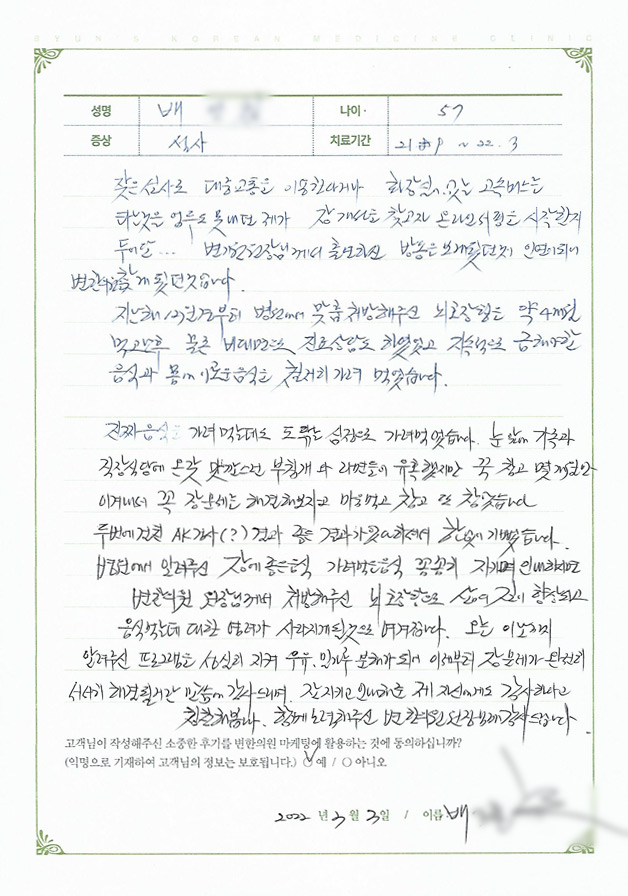 BYUN'S KOREAN MEDICINE CLINIC
성명 배 나이· 57
증상 설사 치료기간 21 ~ 22. 3
잦은 설사로 대중교통을 이동한다거나 화장실이 없는 고속버스는
타는것은 엄두도 못내던 제가 장 개선을 찾고자 온라인서핑을 시작한지
두어달... 변한의원원장님께서 출연하신 방송을 보게됐던것이 인연이되어
변한의원을 찾게 됐던것입니다.
지난해 12월경부터 병원에서 맞춤처방해주신 뇌장탕을 약 4개월
먹고난후 물론 비대면으로 진료상담도 하였었고 지속적으로 금해야할
음식과 몸에 이로운음식을 철저히 가려 먹었습니다.
진짜 음식은 가려먹는데도 도 닦는 심정으로 가려먹었습니다. 눈 앞에 가족과
직장식당에 온갖 맛깔스런 부침개 와 라면들이 유혹했지만 꾹 참고 몇 개월만
이겨내서 꼭 장문제는 해결해보자고 마음먹고 참고 또 참았습니다
두번에 걸친 AK검사(?) 결과 좋은 결과가 있다하셔서 한없이 기뻤습니다.
병원에서 알려주신 장에 좋은음식 가려먹는음식 꼼꼼히 지키며 인내하면
변한의원 원장님께서 처방해주신 뇌장탕으로 삶의 질이 향상되고
음식먹는데 대한 염려가 사라지게될것으로 여겨집니다. 오늘 이 노하지
알려주신 프로그램을 성실히 지켜 우유, 밀가루 보하가 되어 이제부터 장문제가 완전히
서서히 해결될거란 말씀에 감사드리며, 잘 지키고 인내해준 제 자신에게도 감사하다고
칭찬해봅니다. 함께 노력해주신 변한의원 원장님께 감사드립니다.
고객님이 작성해주신 소중한 후기를 변한의원 마케팅에 활용하는 것에 동의하십니까?
(익명으로 기재하여 고객님의 정보는 보호됩니다.) ○예 / ○ 아니오
2022 년 3 월 3 일 / 이름 배